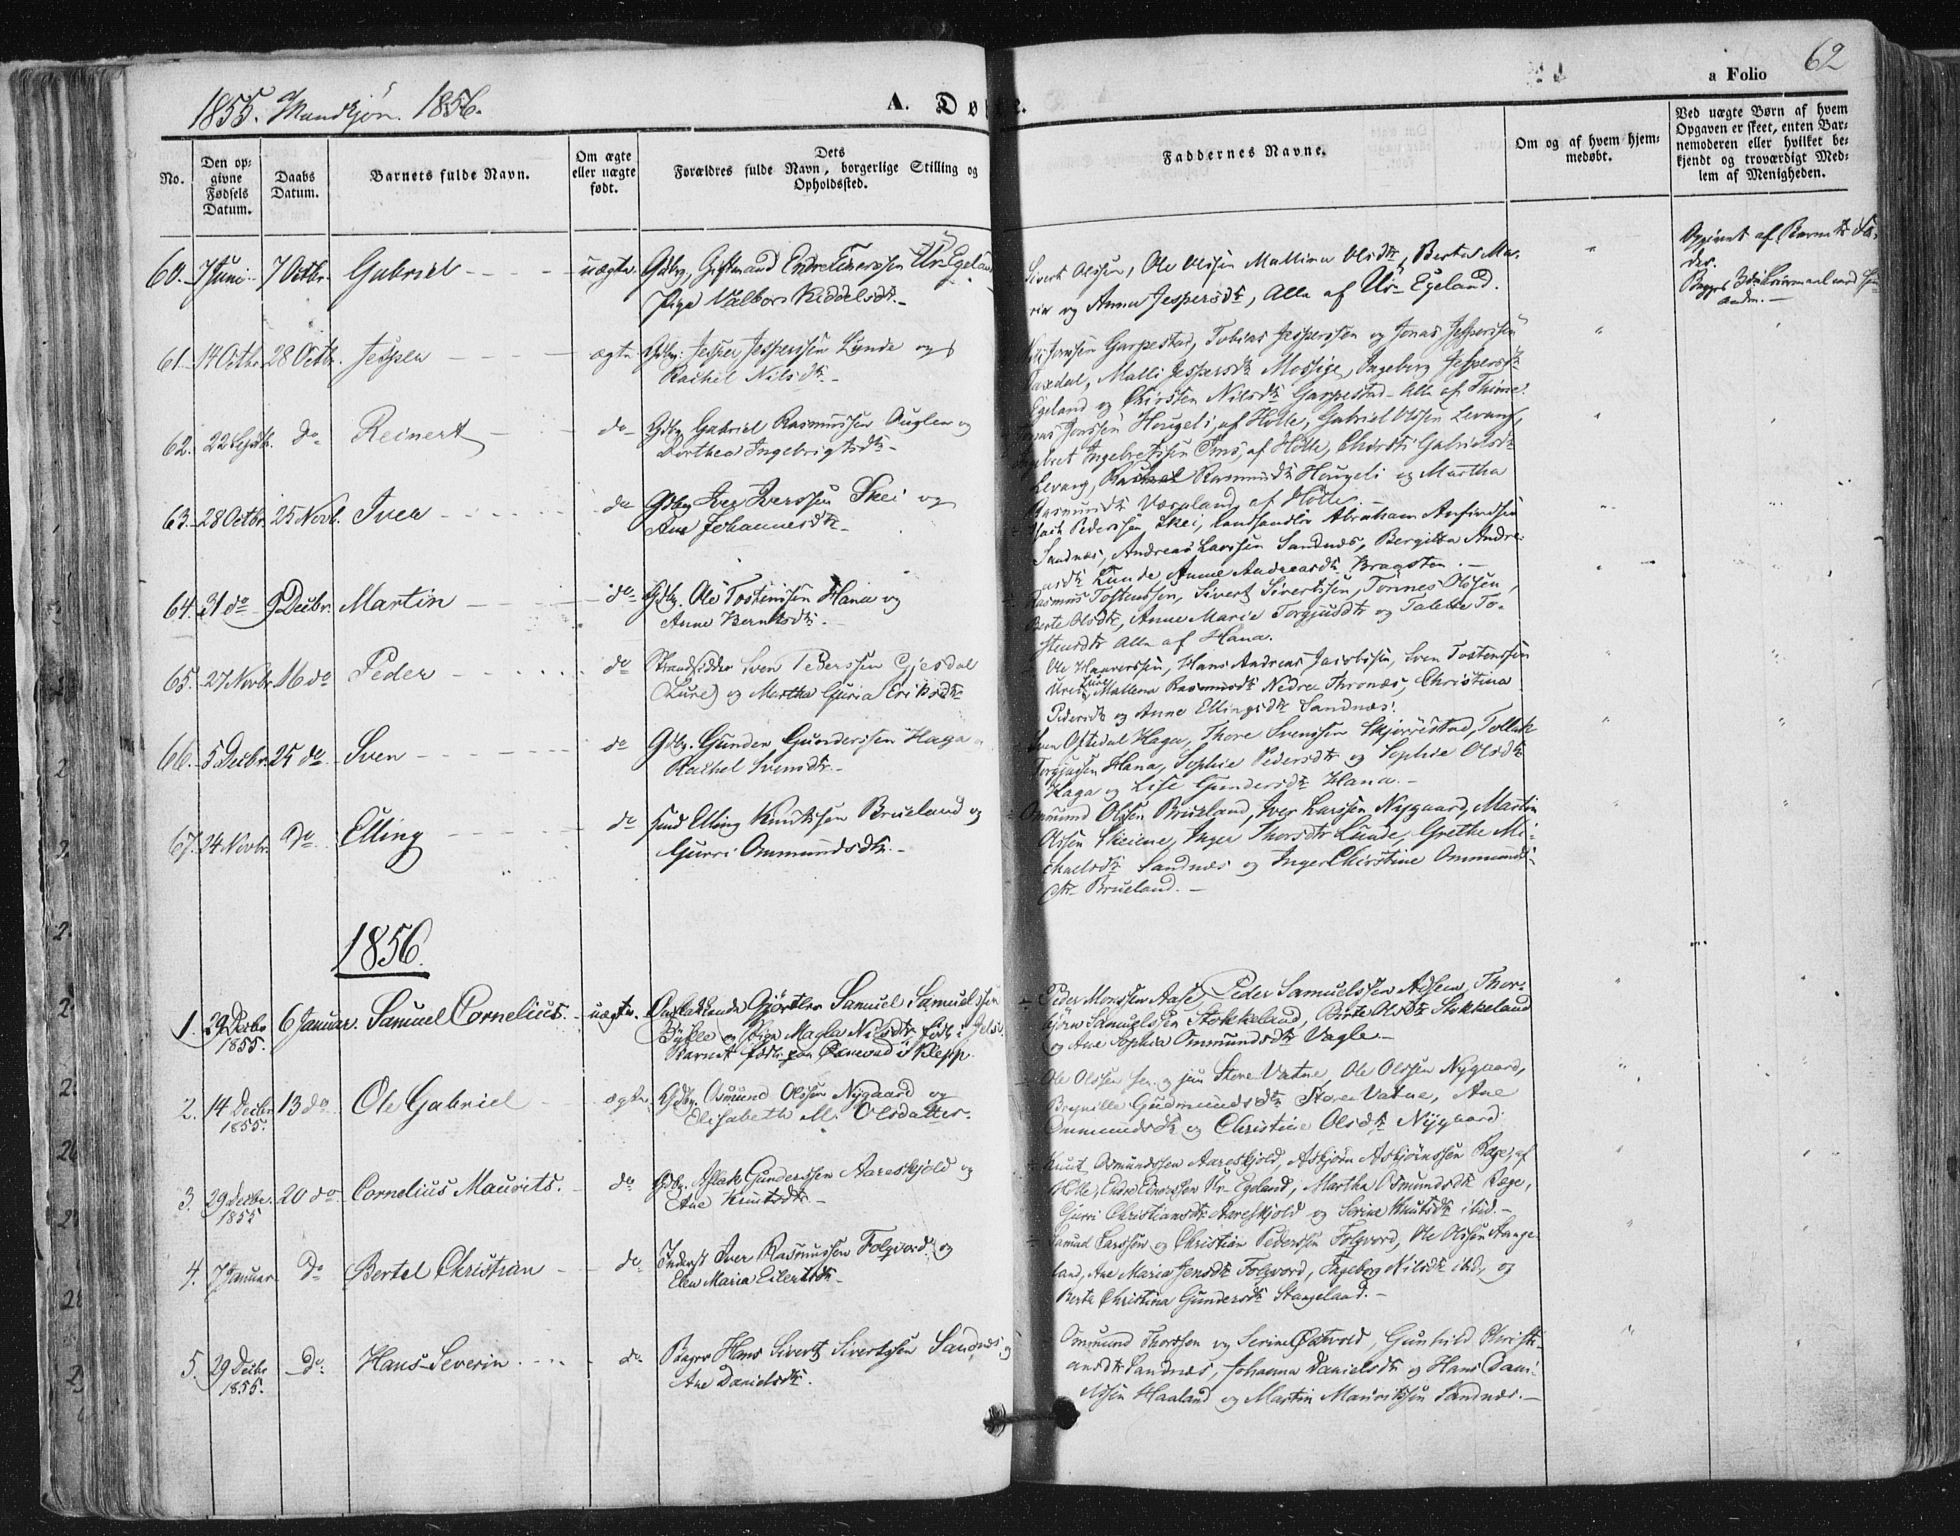 62
1855. Mandkjøn. 1856.
A. Døbte.
a Folio
No.
Den opgivne Fødsels Datum.
Daabs Datum.
Barnets fulde Navn.
Om ægte eller uægte født.
Dets Forældres fulde Navn, borgerlige Stilling og Opholdssted.
Faddernes Navne.
Om og af hvem hjemmedøbt.
Ved uægte Børn af hvem Opgaven er skeet, enten Barnemoderen eller hvilket bekjendt og troværdigt Medlem af Menigheden.
60. 7 Juni 7 Octbr. Gabriel uægte. Gdbr. Giftmand Endre Einerssen Ur-Egeland
Pige Valbor Keddelsdtr.
Sivert Olssen, Ole Olssen Mallina Olsdtr, Bertha Ma-
rie og Anna Jespersdtr, Alle af Ur-Egeland.
Opgivet af Barnets Fa-
der.
61. 14 Octbr. 28 Octbr. Jesper ægte Gdbr. Jesper Jesperssen Lunde og
Rachel Nilsdtr.
Garpestad, Tobias Jesperssen og Jonas Jesperssen
Malli Jespersdtr Mossige, Ingeborg Jespersdtr
Egeland og Kirsten Nilsdtr Garpestad Alle af Thime.
62. 22 Septb. do Reinert do Gdbr. Gabriel Rasmussen Auglen og
Dorthea Ingebrigtsdtr.
Jonssen Hougeli, af Holle, Gabriel Olssen Levang,
Ingebretssen Oms, af Holle, Gabrielsdtr
Levang, Rasmusdtr Hougeli og Martha
Rasmusdtr af Holle.
63. 28 Octbr. 25 Novb. Iver do Gdbr. Iver Iverssen Skei og
Ane Johannesdtr.
Pederssen Skei, Landhandler Abraham
Sandnæs, Andreas Larssen Sandnæs, Bergitta Andre-
asdtr Lunde, Anne Andreasdtr Brogsten.
64. 31 do 9 Decbr. Martin do Gdbr. Ole Tostenssen Hana og
Anne Berntsdtr.
Rasmus Tostenssen, Sivert Sivertssen, Tønnes Olssen,
Berte Olsdtr, Anne Marie Torgiusdtr og Talette To-
stensdtr Alle af Hana.
65. 27 Novbr. 16 do Peder do Strandsidder Sven Pederssen Gjesdal
(Lure) og Martha Guria Eriksdtr
Ole Haaverssen, Hans Andreas Jacobssen, Sven Tostenssen
Mallena Rasmusdtr Nedre Thronæs, Christina
Pedersdtr og Anne Ellingsdtr Sandnæs.
66. 5 Decbr. 25 do Sven do Gdbr. Gunder Gunderssen Haga
Rachel Svensdtr.
Sven Oftedal Haga, Thore Svenssen Skjørrestad, Tollak
Torgjussen Hana, Sophie Pedersdtr og Sophie Olsdtr
Haga og Lise Gundersdtr Hana.
67. 24 Novbr. Do Elling do Husd Elling Knutssen Brueland og
Gurri Ommundsdtr.
Ommund Olssen Brueland, Iver Larssen Nygaard, Martin
Olssen Skeiene, Inger Thorsdtr Lunde, Grethe Mi-
chelsdtr Sandnæs og Inger Christine Ommunds-
dtr Brueland.
1856.
1. 29 Decbr 1855. 6 Januar. Samuel Cornelius. uægte. Gjørtler Samuel Samuelssen
Bykle og Pige Magla Nilsdtr
Barnet født paa i Klepp.
Peder Monssen Aase, Peder Samuelssen Thor-
bjørn Samuelssen Stokkeland, Birte Olsdtr Stokkeland
og Ane Sophia Ommundsdtr Vagle.
2. 14 Decbr 1855. 13 do Ole Gabriel ægte. Gdbr. Osmund Olssen Nygaard og
Elisabeth M. Olsdatter.
Ole Olssen sen. og jun Store Vatne, Ole Olssen Nygaard,
Brynille Gudmundsdtr Store Vatne, Ane
Ommundsdtr og Christine Olsdtr Nygaard.
3. 29 Decbr. 1855 20 do Cornelius Mauritz. do Gdbr. Aslak Gunderssen Aareskjold og
Ane Knutsdtr
Knut Osmundssen Aareskjold, Askjørn Askjørnssen Røge, af
Holle, Endre Einerssen Ur-Egeland, Martha Osmundsdtr Røge,
Gurri Christiansdtr Aareskjold og Serine Knutsdtr ibid.
4. 7 Januar Do Bertel Christian do Inderst Iver Rasmussen Folgvord og
Elen Maria Eilertsdtr
Samuel Larssen og Christian Pederssen Folgvord, Ole Olssen Stange-
land, Ane Maria Jensdtr Folgvord, Ingeborg Nilsdtr ibid, og
Berta Christina Gundersdtr Stangeland.
5. 29 Decbr 1855. Do Hans Severin do. Bager Hans Sivert Sivertssen Sandnæs og
Ane Danielsdtr.
Ommund Thorssen og Serine Østvold, Gunhild Christi-
ansdtr Sandnæs, Johanna Danielsdtr og Hans Dani-
elssen Haaland og Martin Mauritssen Sandnæs.